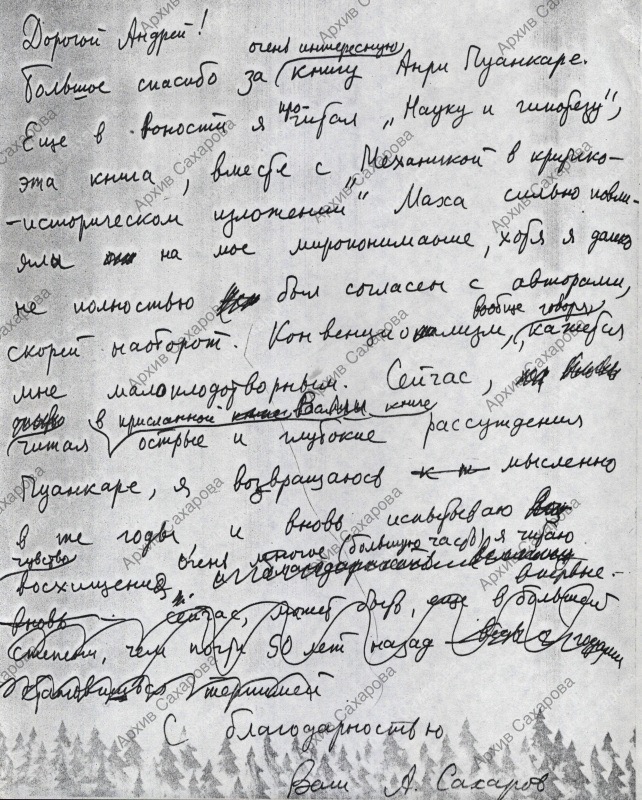 Дорогой Андрей!
очень интересную
Большое спасибо за книгу Анри Пуанкаре.
Еще в юности я прочитал „Науку и гипотезу",
эта книга, вместе с „Механикой в критико-
-историческом изложении" Маха сильно повли-
яли на мое миропонимание, хотя я далеко
не полностью был согласен с авторами,
вообще говоря,
скорей наоборот. Конвенционализм, кажется
мне малоплодотворным. Сейчас, вновь
в присланной Вами книге
читая острые и глубокие рассуждения
Пуанкаре, я возвращаюсь мысленно
в те годы и вновь испытываю
чувство очень многое (большую часть) я читаю
восхищения, впервые.
вновь сейчас, может быть, даже в большей
степени, чем почти 50 лет назад
С благодарностью
Ваш А. Сахаров
Архив Сахарова